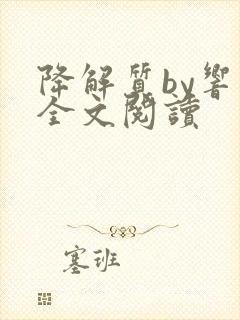 降解質by響
全文閱讀
塞班